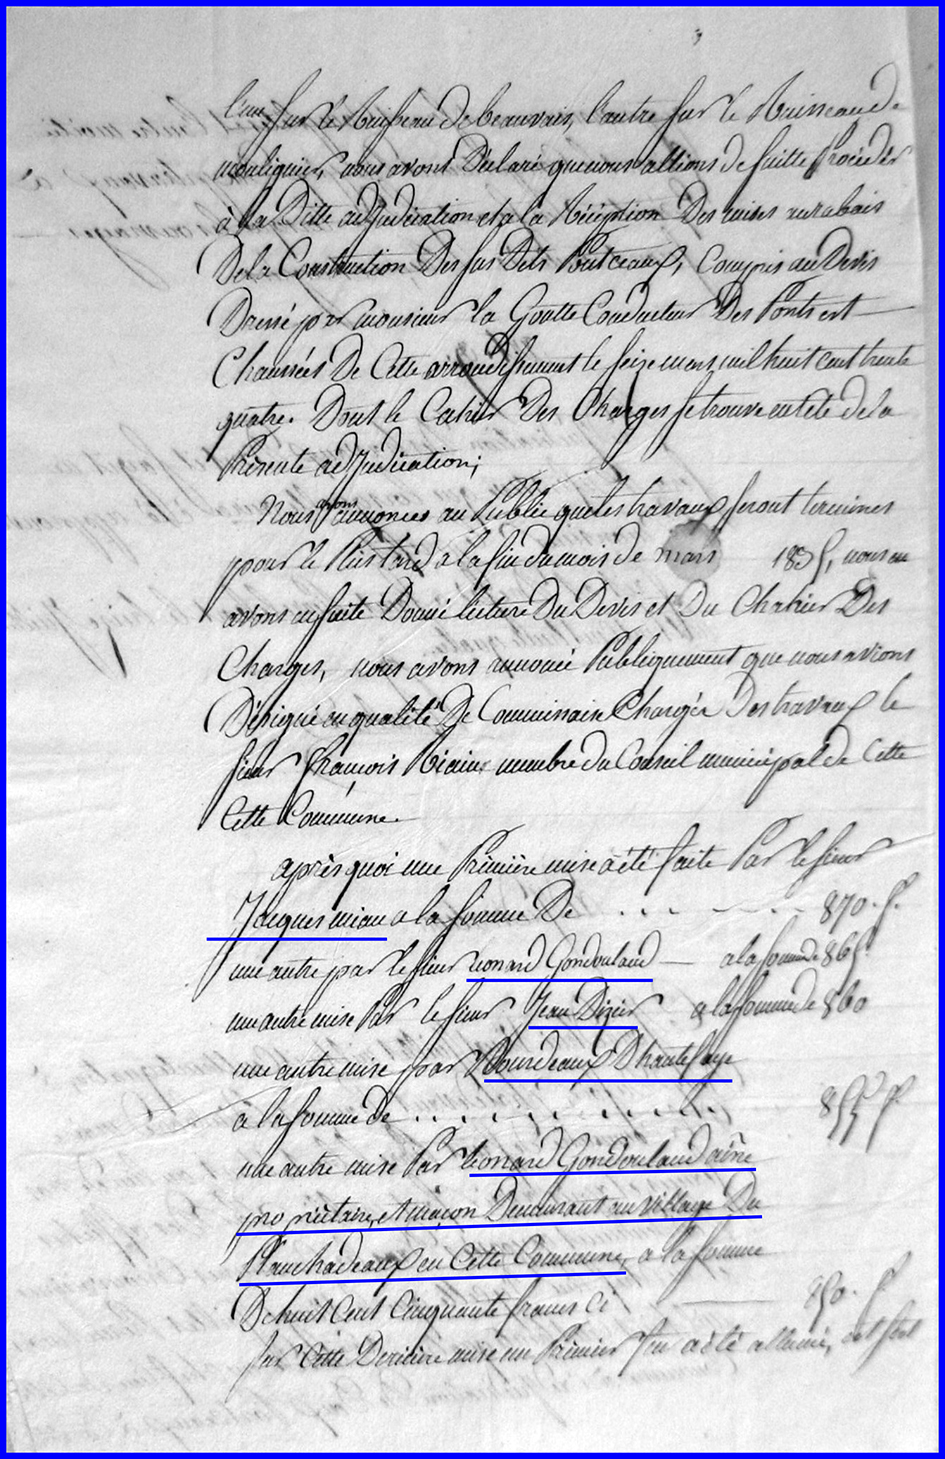 l'un sur le Ruisseau de beauvais, l'autre sur le Ruisseau de
mouliguier, nous avons Déclaré que nous allions de suitte procéder
à la Ditte adjudication et a la Réception Des mises au rabais
De la Construction Des sus Dits Pontceaux, Compris au Devis
Dressé par monsieur la Goutte Conducteur Des Ponts est
Chaussées De Cette arrondissement le seize mars mil huit cent trente
quatre. Dont le Cahier Des Charges se trouve en tête de la
Présente adjudication;
Nous avons annoncés au Public que les travaux seront terminés
pour le Plus tard a la fin du mois de mars 1835, nous en
avons ensuite Donné lecture Du Devis et Du Chahier Des
Charges, nous avons annoncé Publiquement que nous avions
Désigné en qualité De Commissaire Chargér Des travaux le
sieur françois membre du Conseil municipal de Cette
Cette Commune.
après quoi une Première mise a été faite Par le sieur
Jacques miau a la somme De ........ 870. f.
une autre par le sieur Leonard Gondoulaud — a la somme de 865
une autre mise Par le sieur Jean Dizier a la somme de 860
une autre mise par Bourdeaux D'hautefaye
à la somme de .......... 855 f
une autre mise Par Leonard Gondoulaud aîné
propriétaire, et maçon Demeurant au Village Du
Planchadeaux en Cette Commune, a la somme
De huit Cent Cinquante francs Ci — 850. f
sur Cette Dernière mise un Premier feu a été allumé,